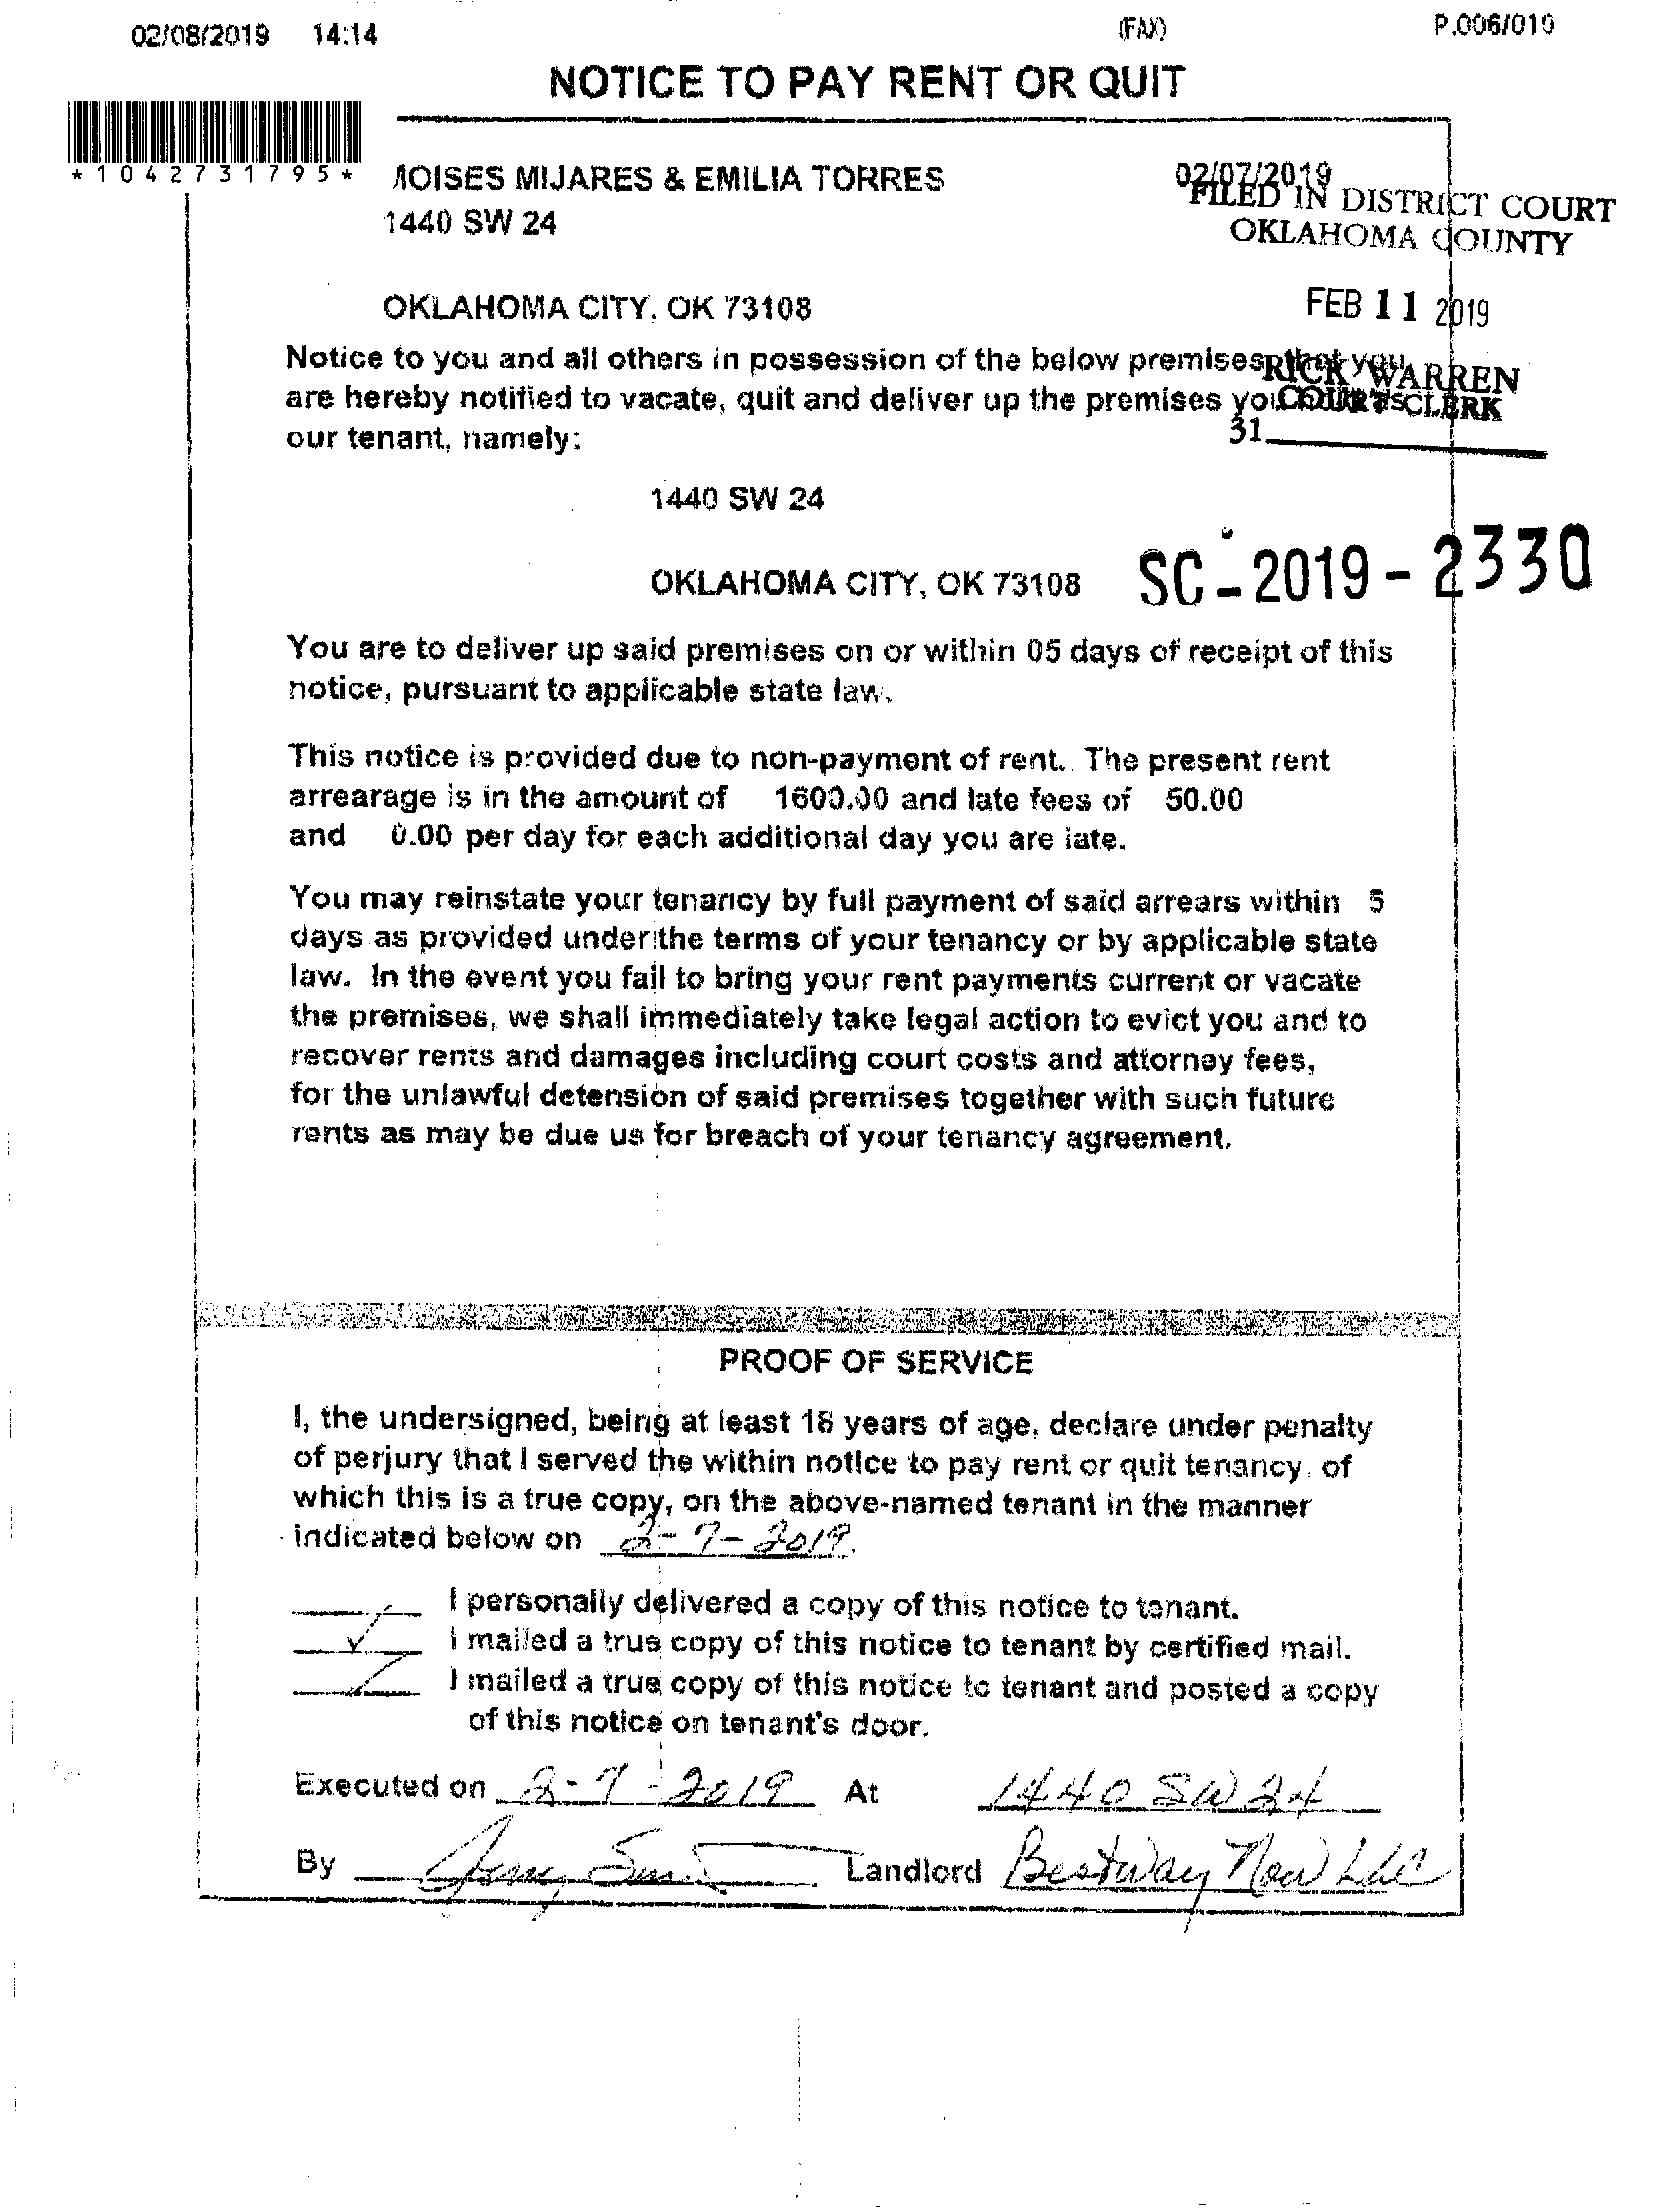 02/08/2019 14:14 (FAX) P.006/010
NOTICE TO PAY RENT OR QUIT
*1042731795*
MOISES MIJARES & EMILIA TORRES 02/07/2019
1440 SW 24
FILED IN DISTRICT COURT
OKLAHOMA COUNTY
OKLAHOMA CITY, OK 73108
FEB 11 2019
Notice to you and all others in possession of the below premises, that you
RICK WARREN
are hereby notified to vacate, quit and deliver up the premises you
COURT CLERK
our tenant, namely:
31
1440 SW 24
SC-2019-2330
OKLAHOMA CITY, OK 73108
You are to deliver up said premises on or within 05 days of receipt of this
notice, pursuant to applicable state law.
This notice is provided due to non-payment of rent. The present rent
arrearage is in the amount of 1600.00 and late fees of 50.00
and 0.00 per day for each additional day you are late.
You may reinstate your tenancy by full payment of said arrears within 5
days as provided under the terms of your tenancy or by applicable state
law. In the event you fail to bring your rent payments current or vacate
the premises, we shall immediately take legal action to evict you and to
recover rents and damages including court costs and attorney fees,
for the unlawful detension of said premises together with such future
rents as may be due us for breach of your tenancy agreement.
PROOF OF SERVICE
I, the undersigned, being at least 18 years of age, declare under penalty
of perjury that I served the within notice to pay rent or quit tenancy, of
which this is a true copy, on the above-named tenant in the manner
indicated below on 2-7-2019.
I personally delivered a copy of this notice to tenant.
I mailed a true copy of this notice to tenant by certified mail.
I mailed a true copy of this notice to tenant and posted a copy
of this notice on tenant's door.
Executed on 2-7-2019 At 1440 SW 24
By Landlord Bestway Now LLC